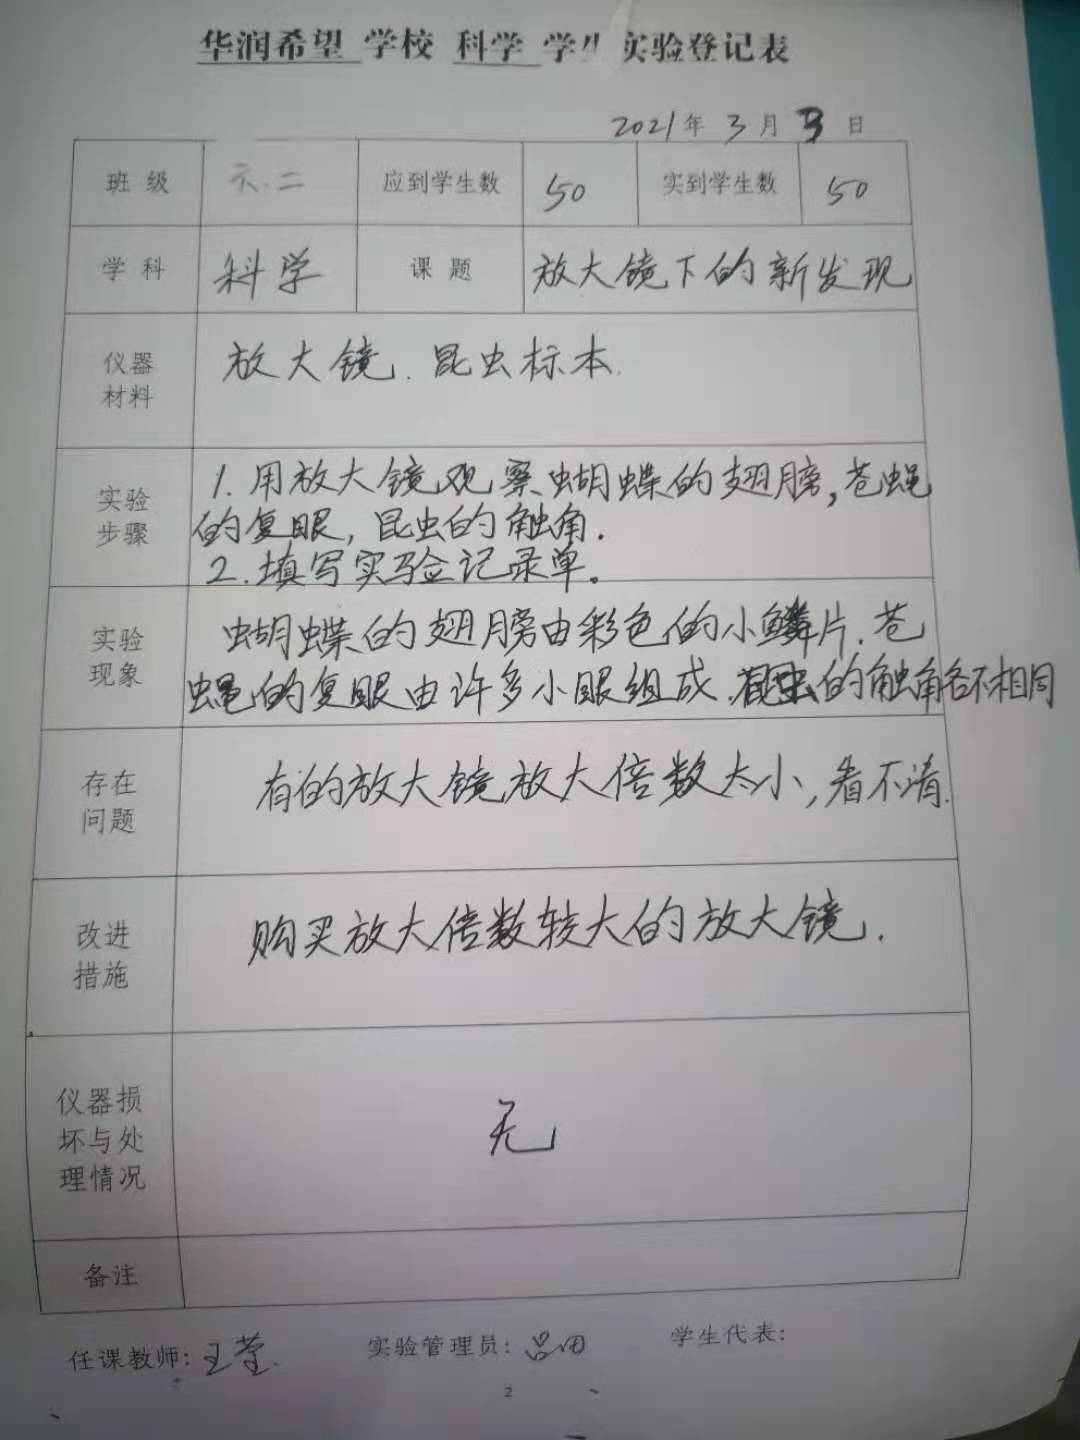 华润希望 学校 科学 学生实验登记表
2021年 3月 3日
班 级 六.二 应到学生数 50 实到学生数 50
学 科 科学 课 题 放大镜下的新发现
仪器
材料
放大镜.昆虫标本.
实验
步骤
1.用放大镜观察蝴蝶的翅膀,苍蝇
的复眼,昆虫的触角.
2.填写实验记录单。
实验
现象
蝴蝶的翅膀由彩色的小鳞片.苍
蝇的复眼由许多小眼组成.昆虫的触角各不相同
存在
问题
有的放大镜放大倍数太小,看不清.
改进
措施
购买放大倍数较大的放大镜.
仪器损
坏与处
理情况
无
备注
任课教师:王莹. 实验管理员:吕田 学生代表:
2